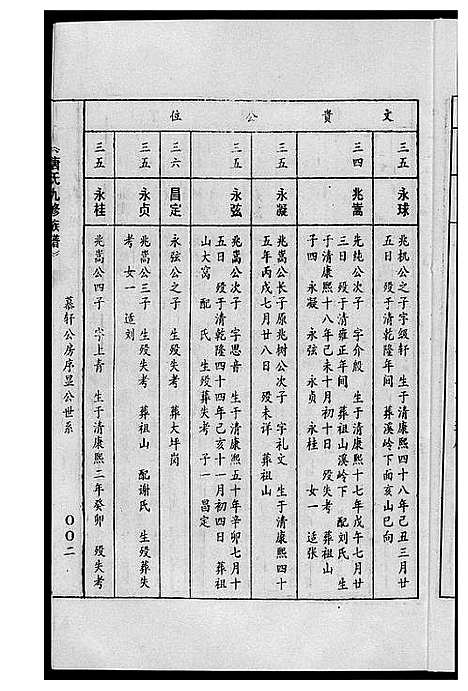 文貴公位
三五 永球
兆机公之子字缓轩 生于清康熙四十八年己丑三月廿
五日 殁于清乾隆年间 葬溪岭下面亥山巳向
三四 兆嵩
先纯公次子 字介殷 生于清康熙十七年戊午七月廿
三日 殁于清雍正年间 葬祖山溪岭下 配刘氏 生
于清康熙十八年己未十月初十日 殁失考 葬祖山
子四 永凝 永弦 永贞 永桂 女一 适张
三五 永凝
兆嵩公长子原兆树公次子 字礼文 生于清康熙四十
五年丙戌七月廿八日 殁未详 葬祖山
三五 永弦
兆嵩公次子 字思音 生于清康熙五十年辛卯七月十
五日 殁于清乾隆四十四年己亥十一月初四日 葬祖
山大窝 配 氏 生殁葬失考 子一 昌定
三六 昌定
永弦公之子 生殁失考 葬大坪岗
三五 永贞
兆嵩公三子 生殁失考 葬祖山 配谢氏 生殁葬失
考 女一 适刘
三五 永桂
兆嵩公四子 字上青 生于清康熙二年癸卯 殁失考
氏九修族谱
慕轩公房序显公世系
〇〇二